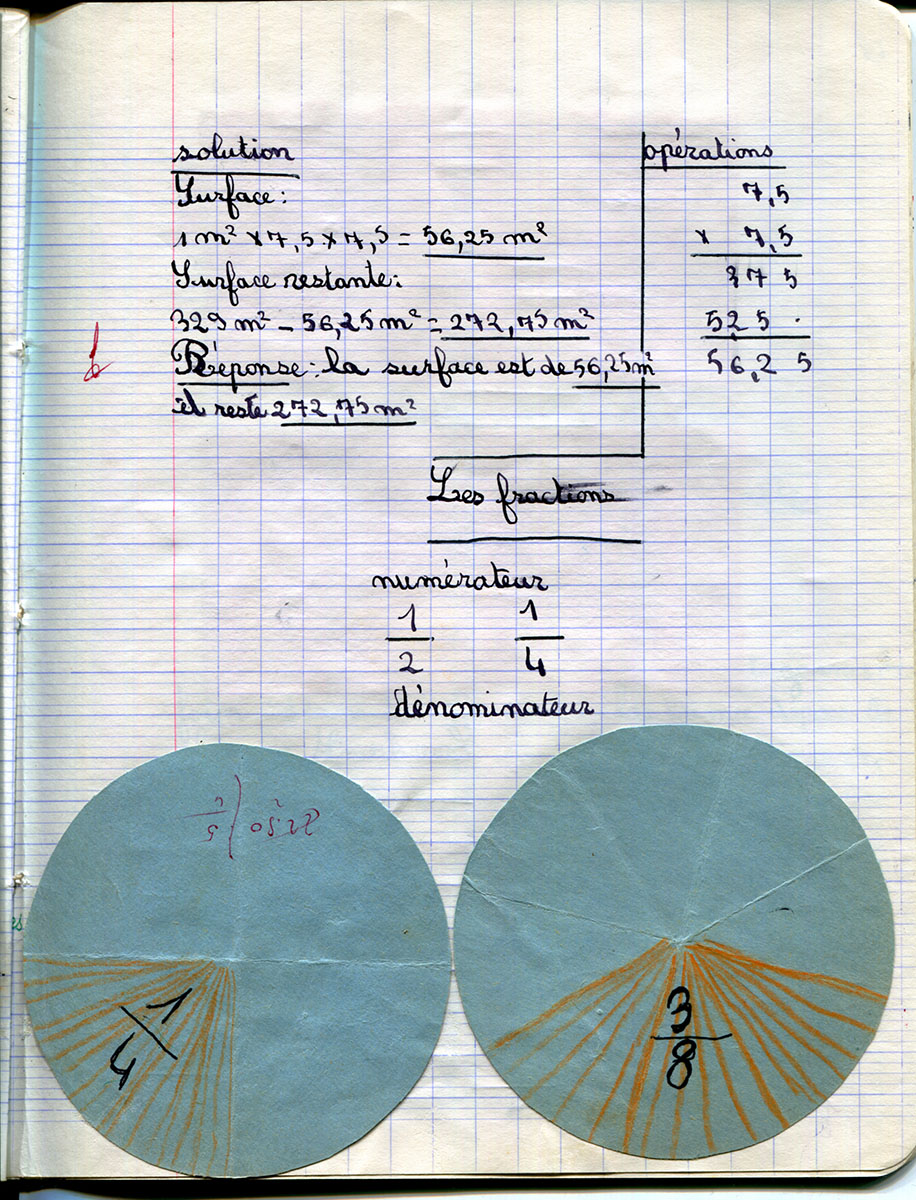 solution
Surface :
1 m² × 7,5 × 7,5 = 56,25 m²
Surface restante :
329 m² – 56,25 m² = 272,75 m²
Réponse : la surface est de 56,25 m²
il reste 272,75 m²
opérations
7,5
× 7,5
375
525 .
56,25
Les fractions
numérateur
1 1
2 4
dénominateur
1
4
3
8